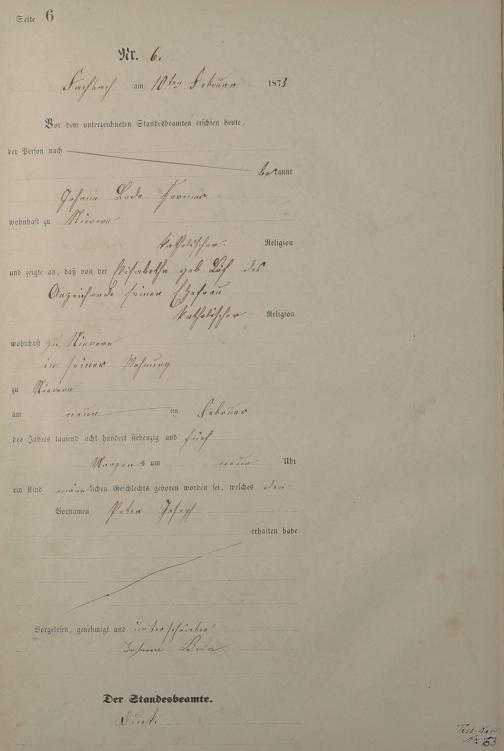 Seite 6
Nr. 6.
Fachbach am 10ten Februar 1873
Vor dem unterzeichneten Standesbeamten erschien heute,
der Person nach
bekannt
Johann
wohnhaft zu Nievern
katholischer Religion
und zeigte an, daß von der Elisabetha geb des
Anzeigende seiner Ehefrau
katholischer Religion
wohnhaft zu Nievern
in seiner Wohnung
zu Nievern
am neun ten Februar
des Jahres tausend acht hundert siebenzig und fünf
Morgens um neun Uhr
ein Kind männlichen Geschlechts geboren worden sei, welches den
Vornamen Peter Joseph
erhalten habe
Vorgelesen, genehmigt und unterschrieben
Johann
Der Standesbeamte.